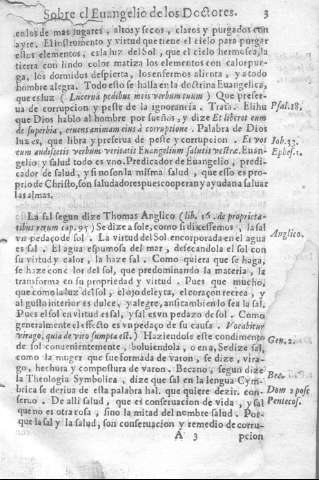 Sobre el Euangelio de los Doctores. 3
en los de mas lugares, altos y secos, claros y purgados con
ayre. El instrumento y virtud que tiene el cielo para purgar
estos elementos, cala luz del Sol, que el cielo hermosea, la
tierra con lindo color matiza los elementos con calor purga,
los dormidos despierta, los enfermos alienta, y a todo
hombre alegra. Todo esto se halla en la doctrina Euangelica,
que es luz ( Lucerna pedibus meis verbum tuum ) Que preserua
de corrupcion y peste de la ignorancia. Trata Elihu Psal. 18,
que Dios hablo al hombre por sueños, y dize Et liberet eum
de superbia, eruens animam eius à corruptione . Palabra de Dios
luz es, que libra y preserua de peste y corrupcion. Et vos Iob. 33.
cum audissetis verbum veritatis Euangelium salutis vestræ. Euangelio Ephes. 1.
y salud todo es vno. Predicador de Euangelio, predicador
de salud, y si no son la misma salud, que esso es proprio
de Christo, son saludadores pues cooperan y ayudan a saluar
las almas.
La sal segun dize Thomas Anglico ( lib. 16. de proprietatibus
rerum cap. 95 ) Se dize a sole, como si dixessemos, la sal Anglico.
vn pedaço de sol. La virtud del Sol incorporada en el agua
es sal. El agua espumosa del mar, desecandola el sol con
su virtud y calor, la haze sal. Como quiera que se haga,
se haze con calor del sol, que predominando la materia, la
transforma en su propriedad y virtud. Pues que mucho,
que como la luz del sol, el ojo deleyta, el coraçon recrea, y
al gusto interior es dulce, y alegre, assi tambien lo sea la sal.
Pues el sol en virtud es sal, y sal es vn pedazo de sol. Como
generalmente el effecto es vn pedaço de su causa. Vocabitur
virago, quia de viro sumpta est. ) Haziendose este condimento Gen. 2.
de sol conuenientemente, boluiendola, o en a, Se dize sal,
como la muger que fue formada de varon, se dize, virago,
hechura y compostura de varon. Becano, segun dize Bec.
la Theologia Symbolica, dize que sal en la lengua Cymbrica Dom 2 post
se deriua de esta palabra hal, que quiere dezir, conseruo. Pentecos.
De alli salud, que es conseruacion de vida, y sal
que no es otra cosa, sino la mitad del nombre salud. Porque
la sal y la salud, son conseruacion y remedio de corru-
A 3 pcion